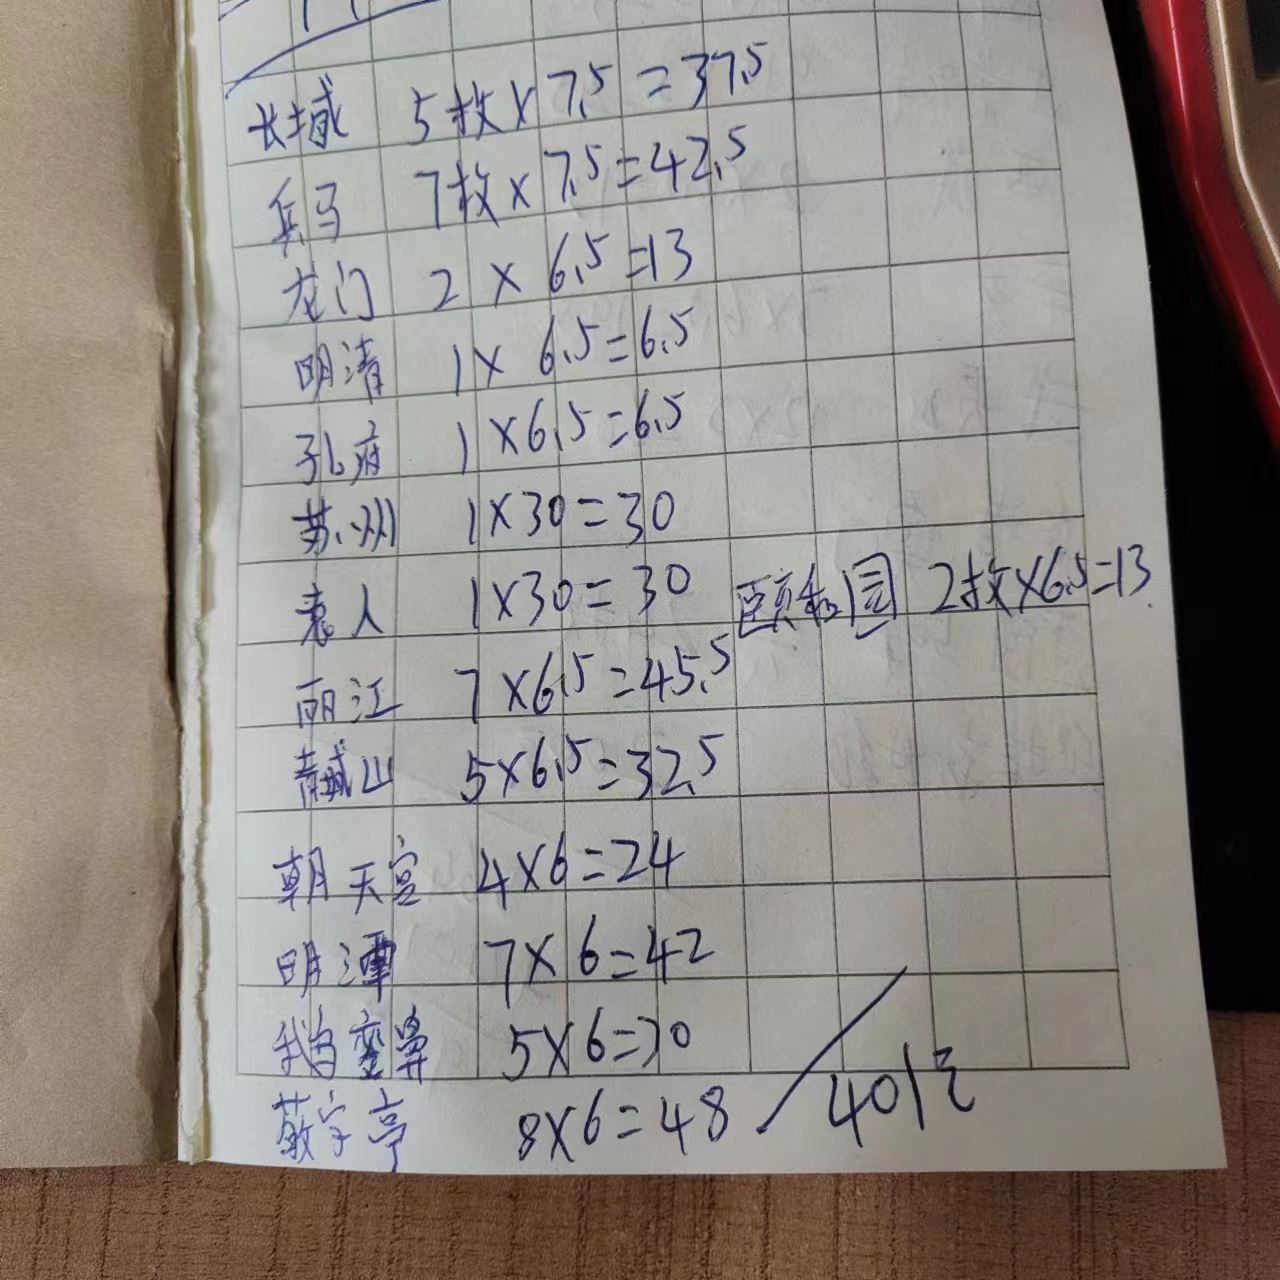 长城 5枚×7.5=37.5
兵马 7枚×7.5=42.5
龙门 2×6.5=13
明清 1×6.5=6.5
孔府 1×6.5=6.5
苏州 1×30=30
袁人 1×30=30 颐和园 2枚×6.5=13
丽江 7×6.5=45.5
青城山 5×6.5=32.5
朝天宫 4×6=24
明潭 7×6=42
鹅銮鼻 5×6=30
敬字亭 8×6=48 401元